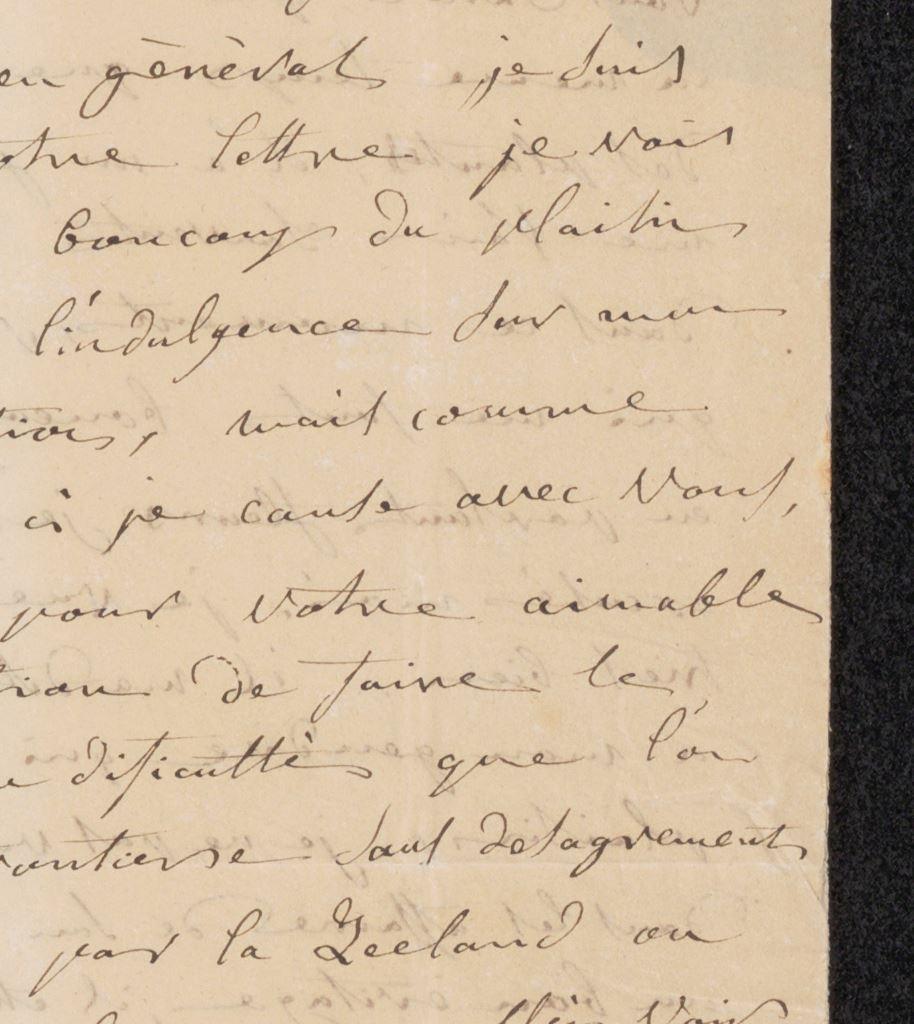 en général je suis
otre lettre je vois
boucoup du plaisir
l'indulgence sur mon
tion, mais comme
ci je cause avec vous,
pour votre aimable
tion de faire le
dificultés que l'on
rontierre sans desagrement
par la Zeeland ou